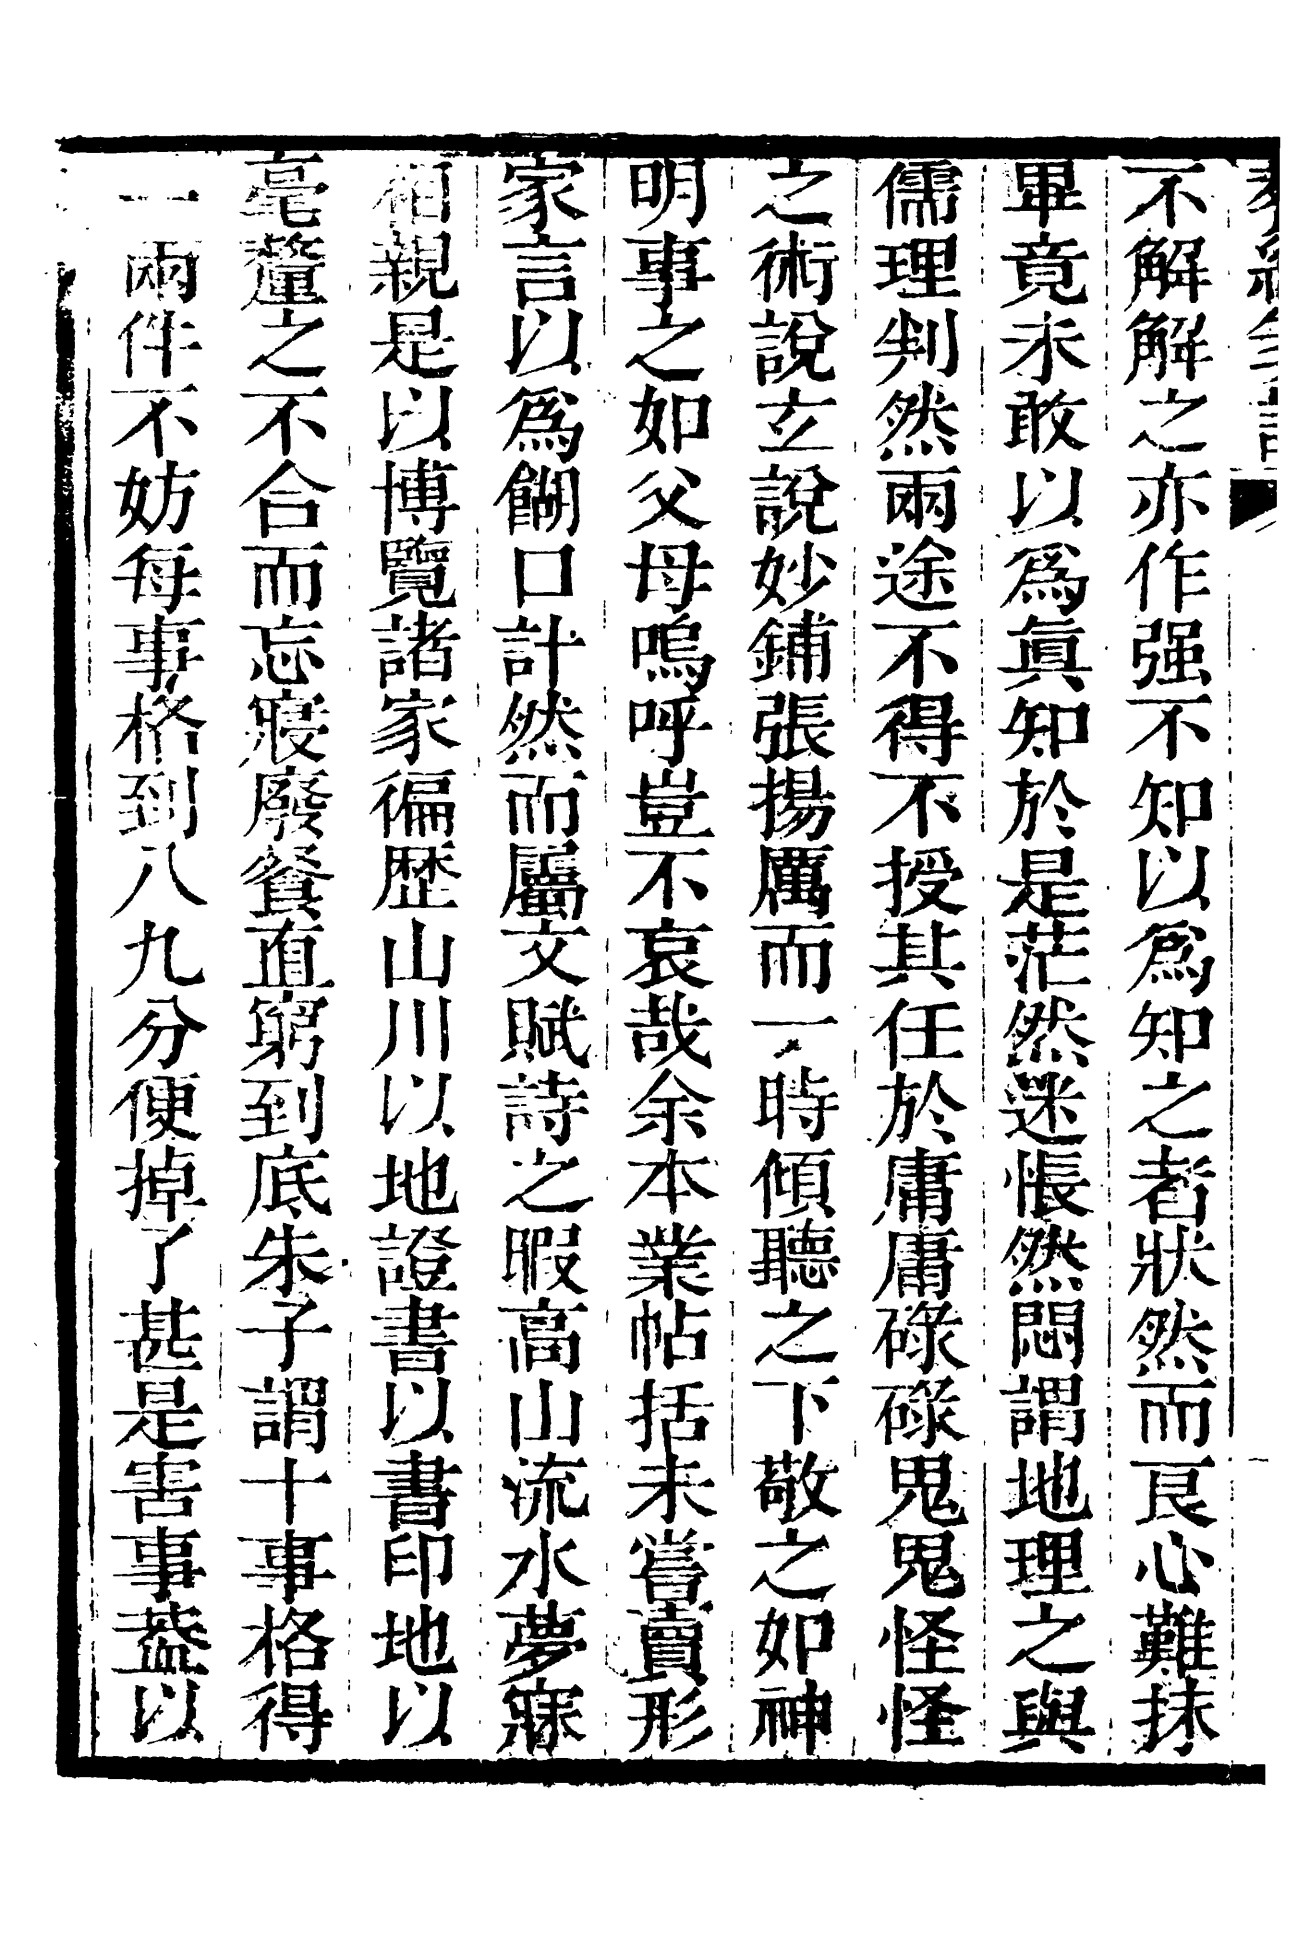 不解解之亦作强不知以爲知之者狀然而良心難抹
畢竟未敢以爲眞知於是茫然迷悵然悶謂地理之與
儒理判然兩途不得不授其任於庸庸碌碌鬼鬼怪怪
之術說玄說妙鋪張揚厲而一時傾聽之下敬之如神
明事之如父母嗚呼豈不哀哉余本業帖括未嘗賣形
家言以爲餬口計然而屬文賦詩之暇高山流水夢寐
相親是以博覽諸家徧歷山川以地證書以書印地以
毫釐之不合而忘寢廢餐直窮到底朱子謂十事格得
一兩件不妨每事格到八九分便掉了甚是害事葢以